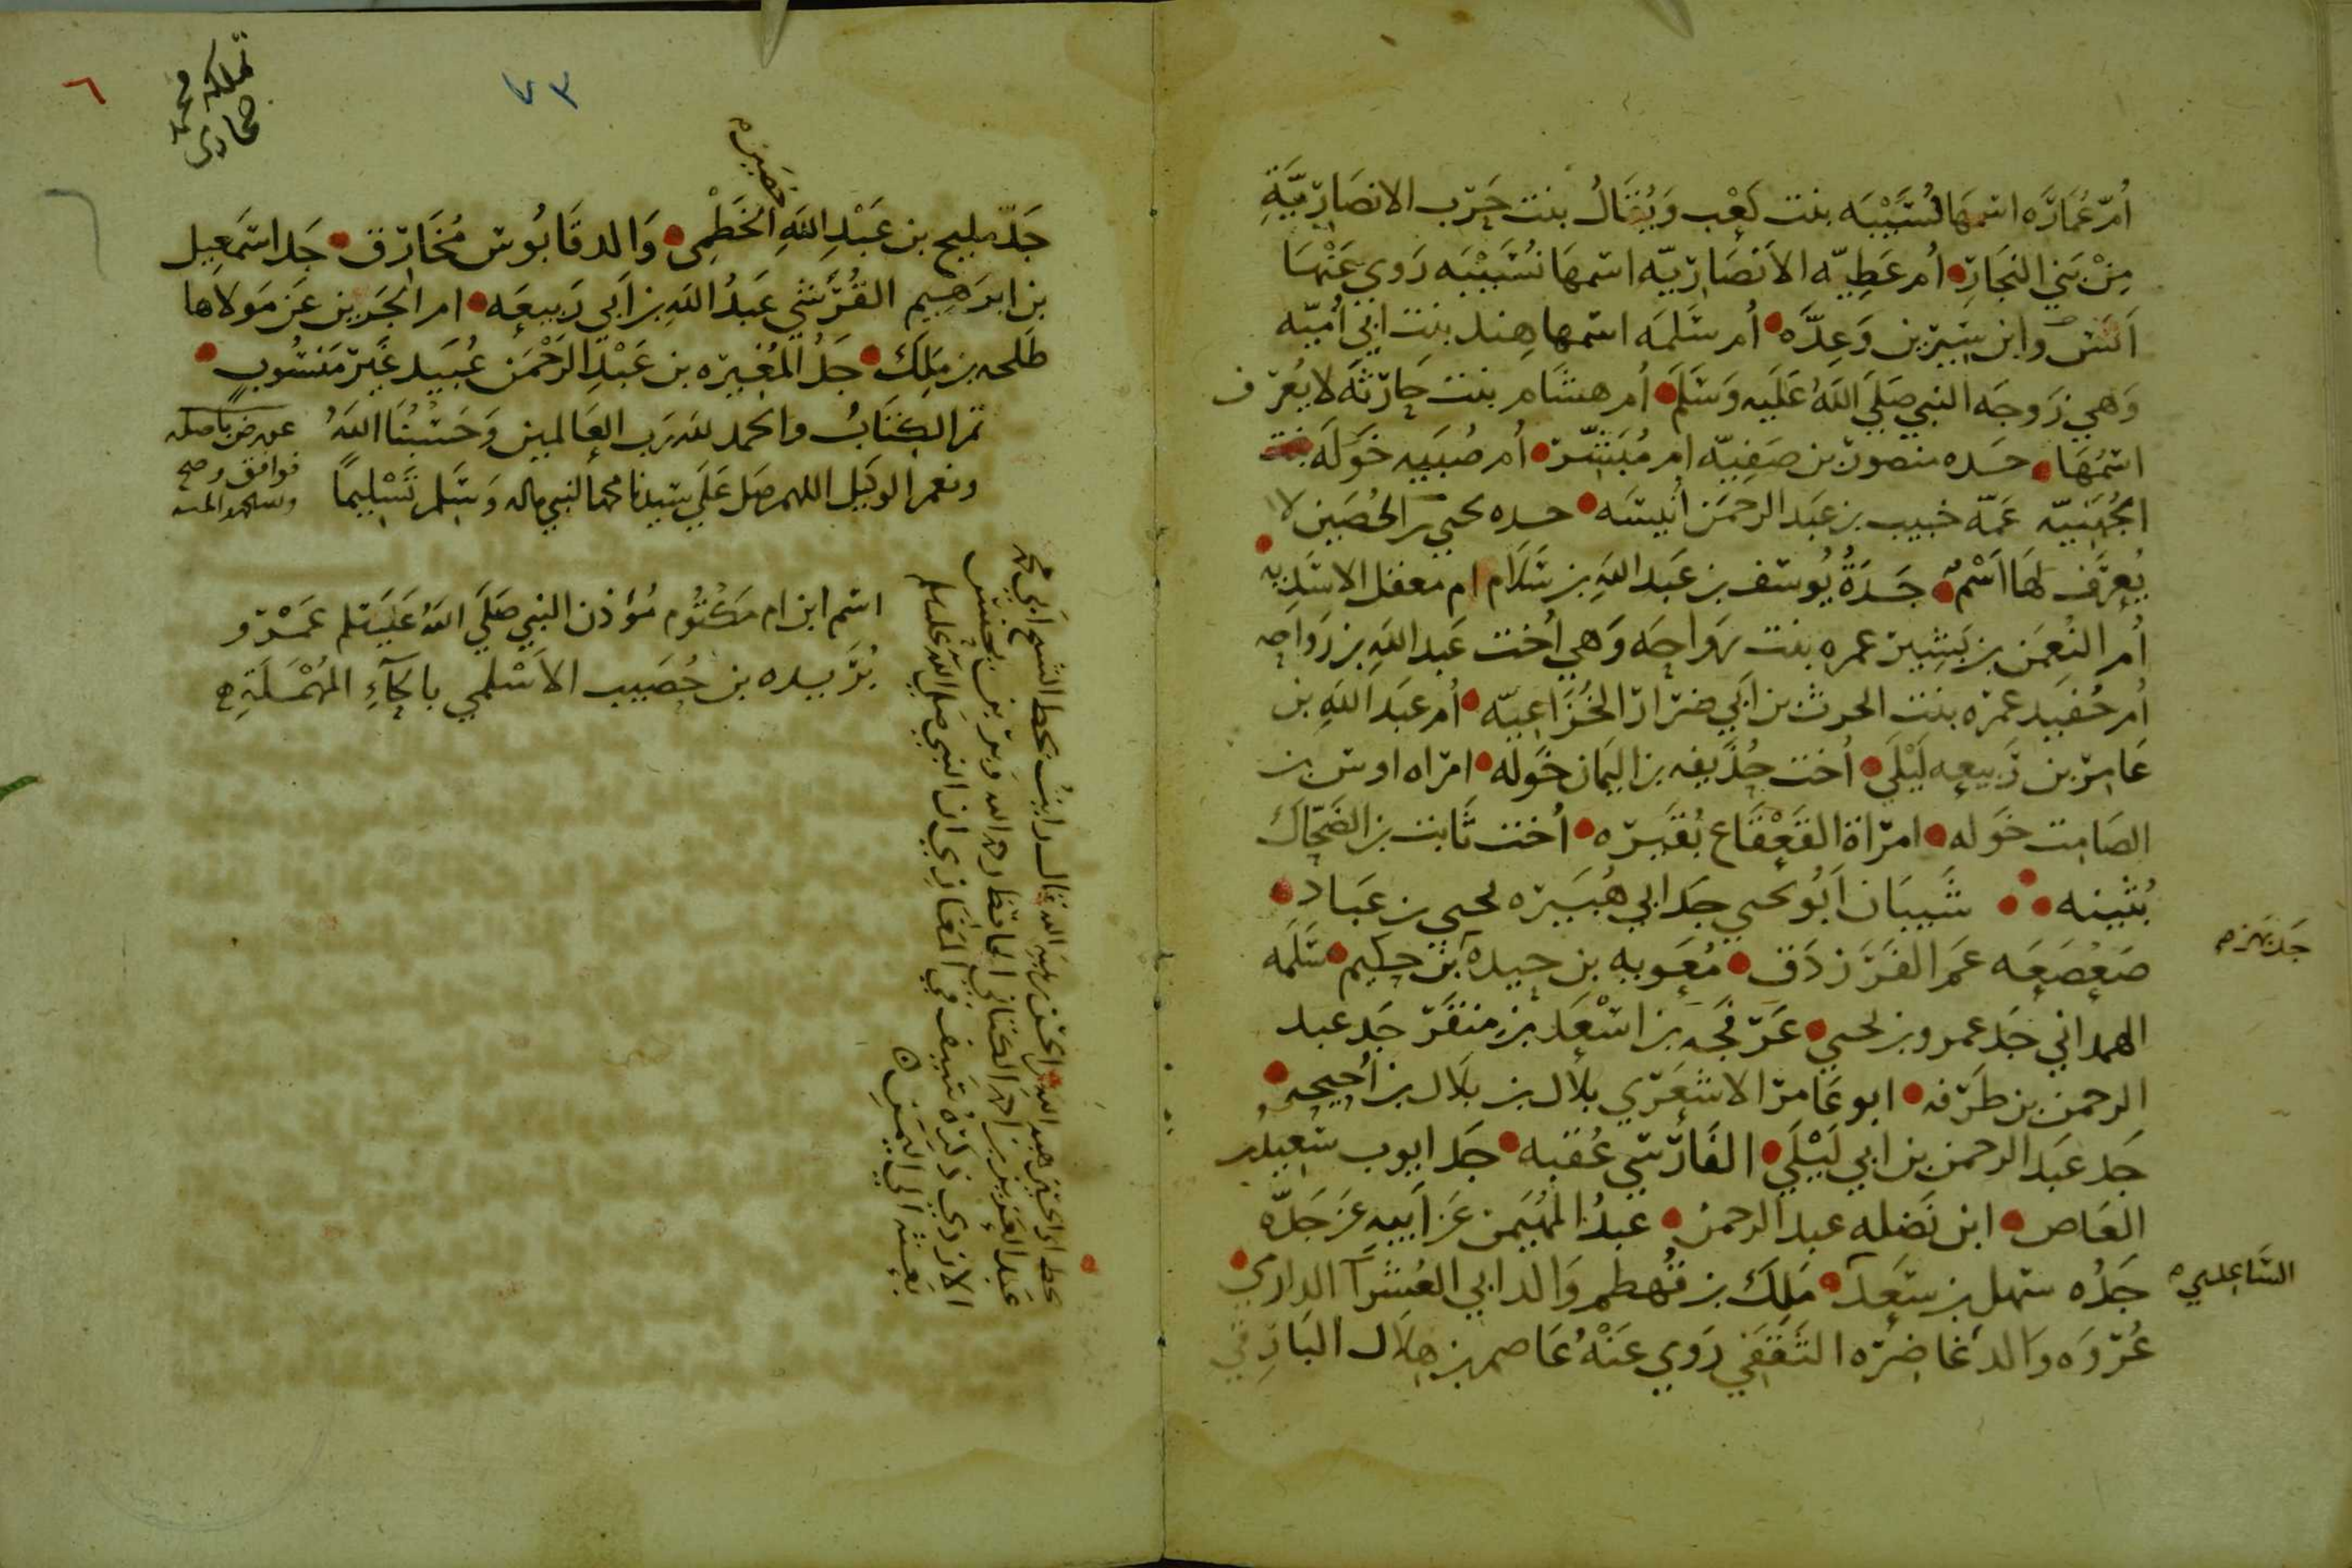 أم عمارة اسمها نسيبه بنت كعب ويقال بنت حرب الانصارية
من بني النجار أم عطيه الانصاريه اسمها نسيبه روي عنها
انس وابن سيرين وعده أم سلمه اسمها هند بنت ابي أميه
وهي زوجه النبي صلى الله عليه وسلم أم هشام بنت حارثه لا يعرف
اسمها منصور بن صفيه ام مبشر أم صبيه خوله بنت
الجهنيه عمة خبيب بن عبد الرحمن أنيسه جده يحيي بن الحصين لا
يعرف لها اسم جدة يوسف بن عبد الله بن سلام ام معقل الاسديه
أم النعمن بن بشير عمره بنت رواحه وهي أخت عبد الله بن رواحه
أم حفيد عمره بنت الحرث بن ابي ضرار الخزاعيه أم عبد الله بن
عامر بن ربيعه ليلي أخت حذيفه بن اليمان خوله امراه اوس بن
الصامت خوله امراة القعقاع بقيره أخت ثابت بن الضحاك
بثينه شيبان ابو يحيي جد ابي هبيره يحيي بن عباد
صعصعه عم الفرزدق معويه بن حيده بن حكيم سلمه
جد بهز
الهمداني جد عمرو بن يحيي عرفجه بن اسعد بن منقر جد عبد
الرحمن بن طرفه ابو عامر الاشعري بلال بن بلال بن أحيحه
جد عبد الرحمن بن ابي ليلي الفارسي عقبه جد ايوب سعيد
العاص ابن نضله عبد الرحمن عبد المهيمن عن أبيه عن جده
جده سهل بن سعد ملك بن قهطم والد ابي العشرا الداري
الساعدي
عروه والد غاضره الثقفي روي عنه عاصم بن هلال البارقي
تملكه محمد
٧٣
٦
حصين
جد مليح بن عبد الله الخطمي والد قابوس مخارق جد اسمعيل
بن ابرهيم القرشي عبد الله بن أبي ربيعه ام الحرير عن مولاها
طلحه بن ملك جد المغيره بن عبد الرحمن عبيد غير منسوب
تم الكتاب والحمد لله رب العالمين وحسبنا الله
ونعم الوكيل اللهم صل علي سيدنا محمد النبي واله وسلم تسليما
عورض باصله
فوافق وصح
ولله الحمد والمنه
اسم ابن ام مكتوم مؤذن النبي صلى الله عليه وسلم عمرو
بريده بن حصيب الاسلمي بالحاء المهملة
عبد العزيز بن احمد الكتاني الحافظ رحمه الله وبر بن يحنس
الازدي ذكره سيف في المغازي ان النبي صلى الله عليه وسلم
بعثه الي اليمن